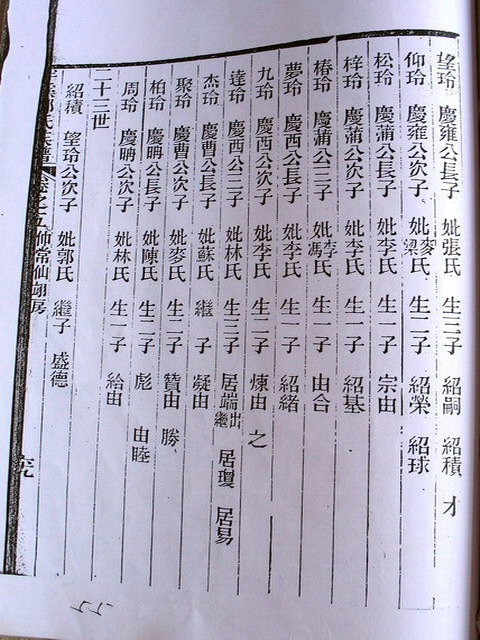 望玲 慶雍公長子 妣張氏 生三子 紹嗣 紹積 才
仰玲 慶雍公次子 妣麥梁氏 生二子 紹榮 紹球
松玲 慶蒲公長子 妣李氏 生一子 宗由
梓玲 慶蒲公次子 妣李氏 生一子 紹基
椿玲 慶蒲公三子 妣李馮氏 生一子 由合
夢玲 慶西公長子 妣李氏 生一子 紹緒
九玲 慶西公次子 妣李氏 生二子 煉由 之
達玲 慶西公三子 妣林氏 生三子 居端出繼 居瓊 居易
杰玲 慶曹公長子 妣蘇氏 繼子 凝由
聚玲 慶曹公次子 妣麥氏 生二子 贊由 勝
柏玲 慶聃公長子 妣陳氏 生二子 彪 由睦
周玲 慶聃公次子 妣林氏 生一子 給由
二十三世
紹積 望玲公次子 妣郭氏 繼子 盛德
氏族譜 卷之五 仙常仙翊房 六九
55